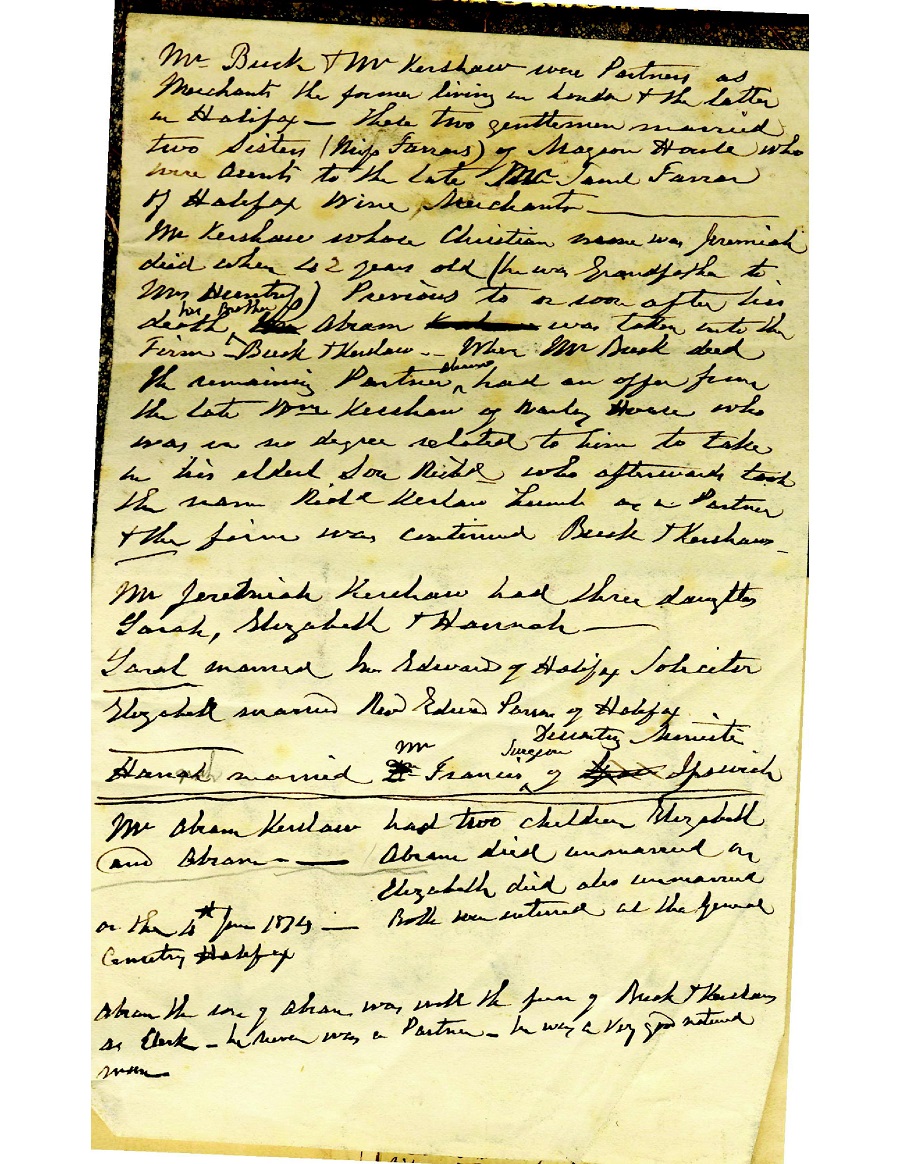 Mr Buck & Mr Kershaw were Partners as
Merchants the former living in London & the latter
in Halifax — These two gentlemen married
two Sisters (Miss Farrars) of Magson House who
were Aunts to the late Farrar
of Halifax Wine Merchants
Mr Kershaw whose Christian name was Jeremiah
died when 42 years old (he was Grandfather to
Mrs ) Previous to or soon after his
death, his Brother Abram was taken into the
Firm Buck & Kershaw — When Mr Buck died
the remaining Partner Abram had an offer from
the late Wm Kershaw of House who
was in no degree related to him to take
in his eldest Son Richd who afterwards took
the name Richd Kershaw as a Partner
& the firm was continued Buck & Kershaw —
Mr Jeremiah Kershaw had three daughters
Sarah, Elizabeth & Hannah —
Sarah married Edwards of Halifax Solicitor
Elizabeth married Revd of Halifax
Dissenting Minister
Hannah married Mr Francis Surgeon of Ipswich
Mr Abram Kershaw had two children Elizabeth
and Abram — Abram died unmarried on
Elizabeth died also unmarried
on the 4th 1874 — Both were interred at the General
Cemetery Halifax
Abram the son of Abram was with the firm of Buck & Kershaw
as Clerk — he never was a Partner — he was a very good natured
man